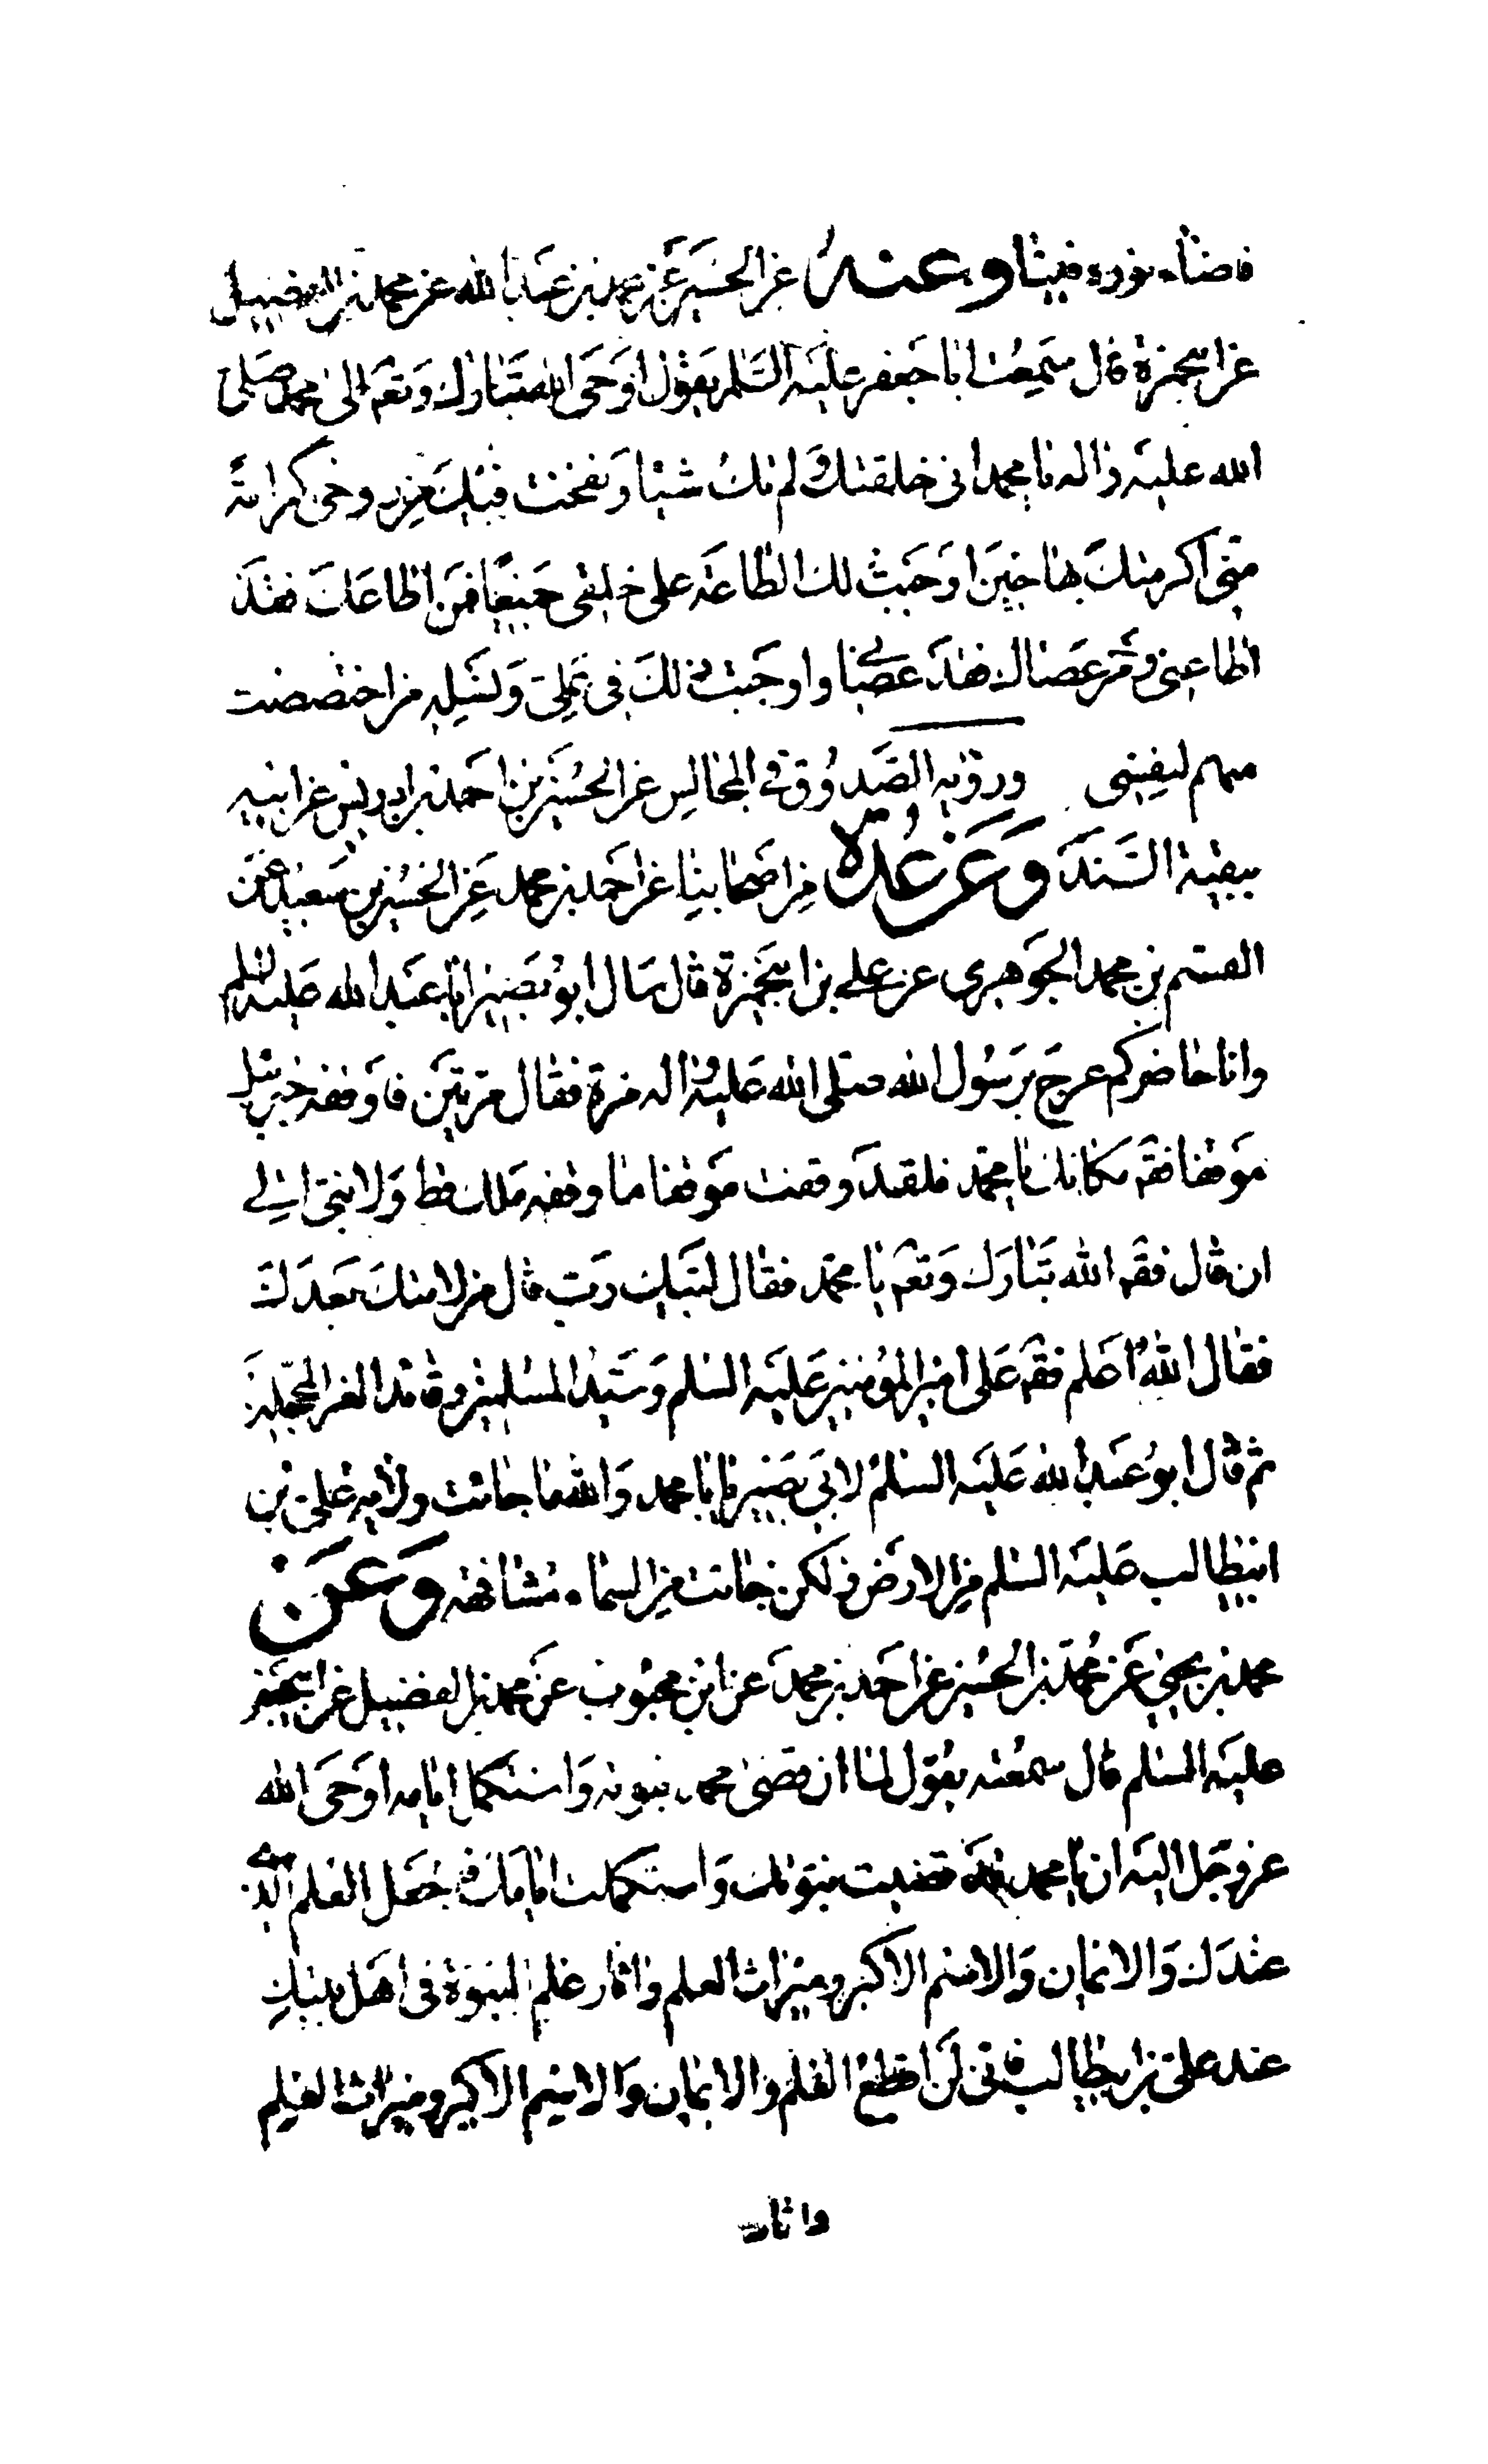 فاضاء نوره فينا وعنه عن الحسين عن محمد بن عبد الله عن محمد بن الفضيل
عن ابيحمزة قال سمعت ابا جعفر عليه السلم يقول اوحى الله تبارك وتعم الى محمد صلى
الله عليه واله يا محمد انى خلقتك ولم تك شيئا ونفخت فيك من روحى كرامة
منى اكرمتك بها حين اوجبت لك الطاعة على خلقى جميعا فمن اطاعك فقد
اطاعنى ومن عصاك فقد عصانى واوجبت ذلك فى على وفى نسله من اختصصت
منهم لنفسى ورواه الصدوق فى المجالس عن الحسين بن احمد بن ادريس عن ابيه
ببقية السند وعن عدة من اصحابنا عن احمد بن محمد عن الحسين بن سعيد عن
القسم بن محمد الجوهرى عن على بن ابيحمزة قال سال ابو بصير ابا عبد الله عليه السلم
وانا حاضر كم عرج برسول الله صلى الله عليه واله مرة فقال مرتين فاوقفه جبرئيل
موقفا فقم مكانك يا محمد فلقد وقفت موقفا ما وقفه ملك قط ولا نبى الى
ان قال فقم الله تبارك وتعم يا محمد فقال لبيك رب قال من لامتك بعدك
فقال الله اعلم فقم على امير المؤمنين عليه السلم وسيد المسلمين وقائد الغر المحجلين
ثم قال ابو عبد الله عليه السلم لابى بصير يا ابا محمد والله ما جاءت ولاية على بن
ابيطالب عليه السلم من الارض ولكن جاءت من السماء مشافهة وعن
محمد بن يحيى عن محمد بن الحسين عن احمد بن محمد عن ابن محبوب عن محمد بن الفضيل عن ابيجعفر
عليه السلم قال سمعته يقول لما ان قضى محمد نبوته واستكمل ايامه اوحى الله
عز وجل اليه ان يا محمد قد قضيت نبوتك واستكملت ايامك فاجعل العلم الذى
عندك والايمان والاسم الاكبر وميراث العلم واثار علم النبوة فى اهل بيتك
عند على بن ابيطالب فانى لن اقطع العلم والايمان والاسم الاكبر وميراث العلم
واثار